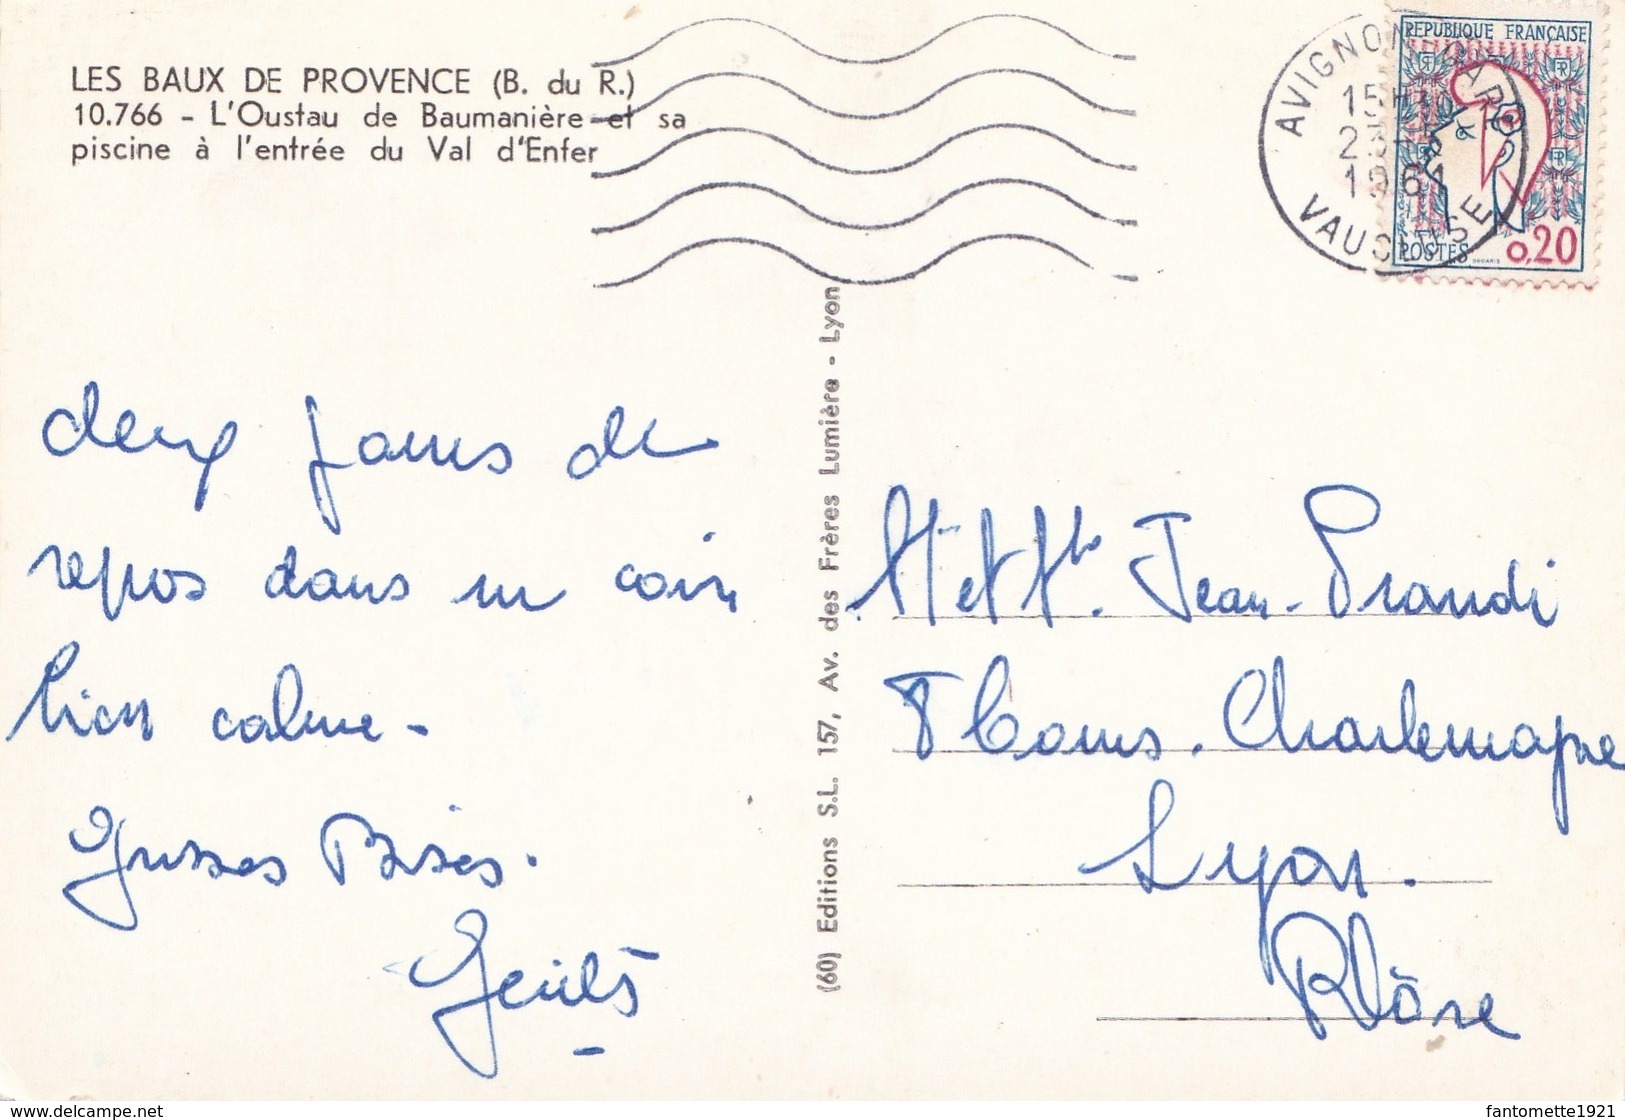 LES BAUX DE PROVENCE (B. du R.)
10.766 - L'Oustau de Baumanière et sa
piscine à l'entrée du Val d'Enfer
AVIGNON GARE
15H
1961
VAUCLUSE
REPUBLIQUE FRANÇAISE
POSTES
0,20
DECARIS
deux jours de
repos dans un coin
bien calme -
Grosses Bises.
(60) Editions S.L. 157, Av. des Frères Lumière - Lyon
M et Me. Jean Prandi
Cours. Charlemagne
Lyon.
Rhône
www.delcampe.net
fantomette1921